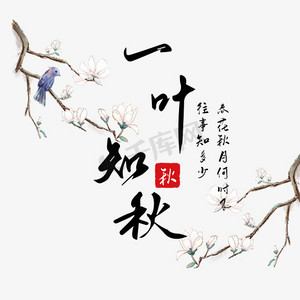 一叶知秋
秋
春花秋月何时了
往事知多少